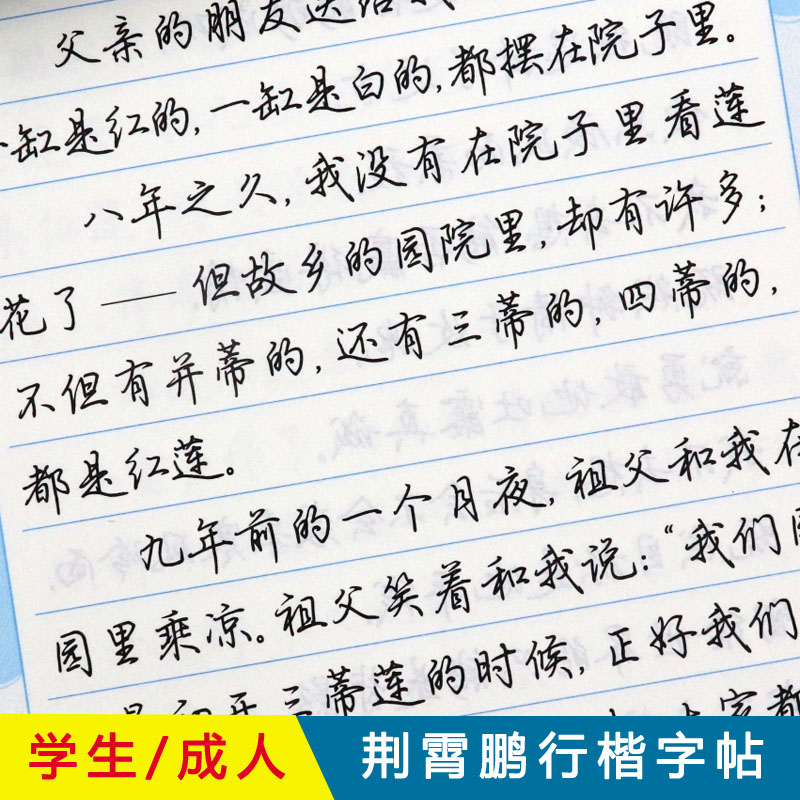 父亲的朋友送给我
缸是红的,一缸是白的,都摆在院子里。
八年之久,我没有在院子里看莲
花了——但故乡的园院里,却有许多;
不但有并蒂的,还有三蒂的,四蒂的,
都是红莲。
九年前的一个月夜,祖父和我在
园里乘凉。祖父笑着和我说:“我们
三蒂莲的时候,正好我们
大家都
学生/成人
荆霄鹏行楷字帖